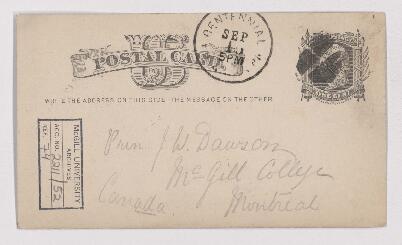 CENTENNIAL
SEP
5PM
POSTAL CARD
WRITE THE ADDRESS ON THIS SIDE - THE MESSAGE ON THE OTHER
Prin J. W. Dawson
McGill College
Montreal
Canada
McGILL UNIVERSITY
ARCHIVES
ACC. NO. 2211/52
REF.